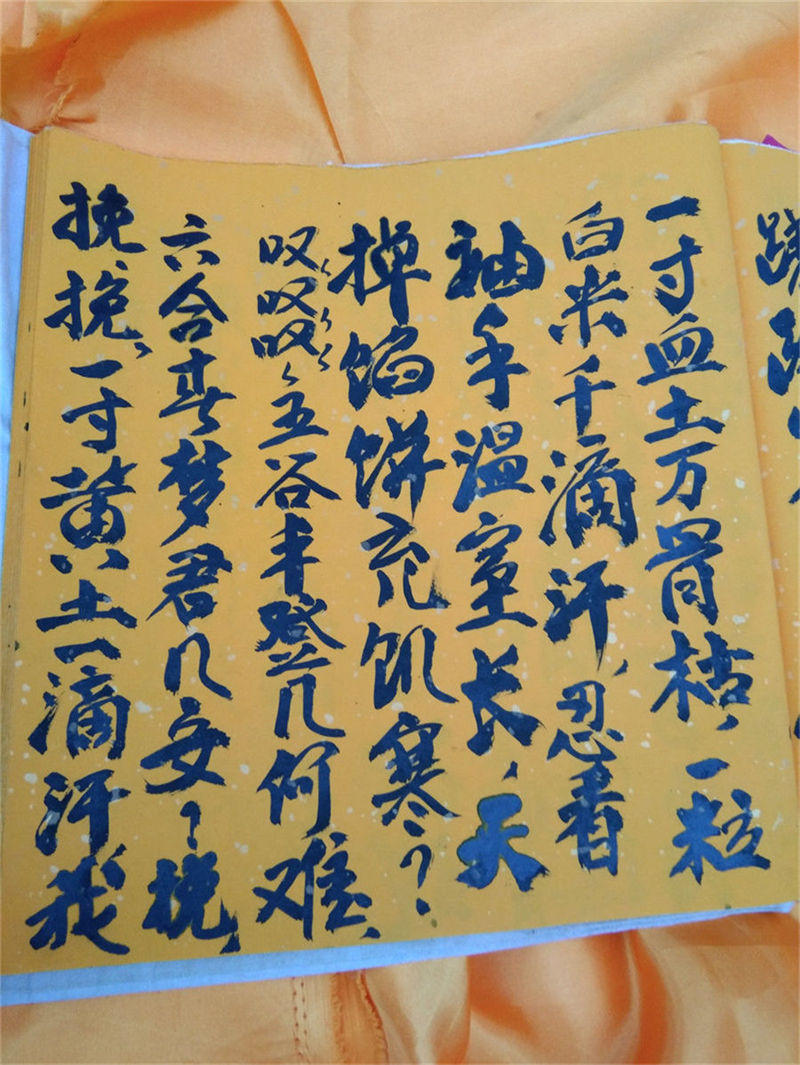 一寸血土万骨枯，一粒
白米千滴汗，忍看
袖手温室长，天
掉馅饼充饥寒？
叹、叹、叹、五谷丰登几何难，
六合春梦君几安？挽，
挽、挽、一寸黄土一滴汗我